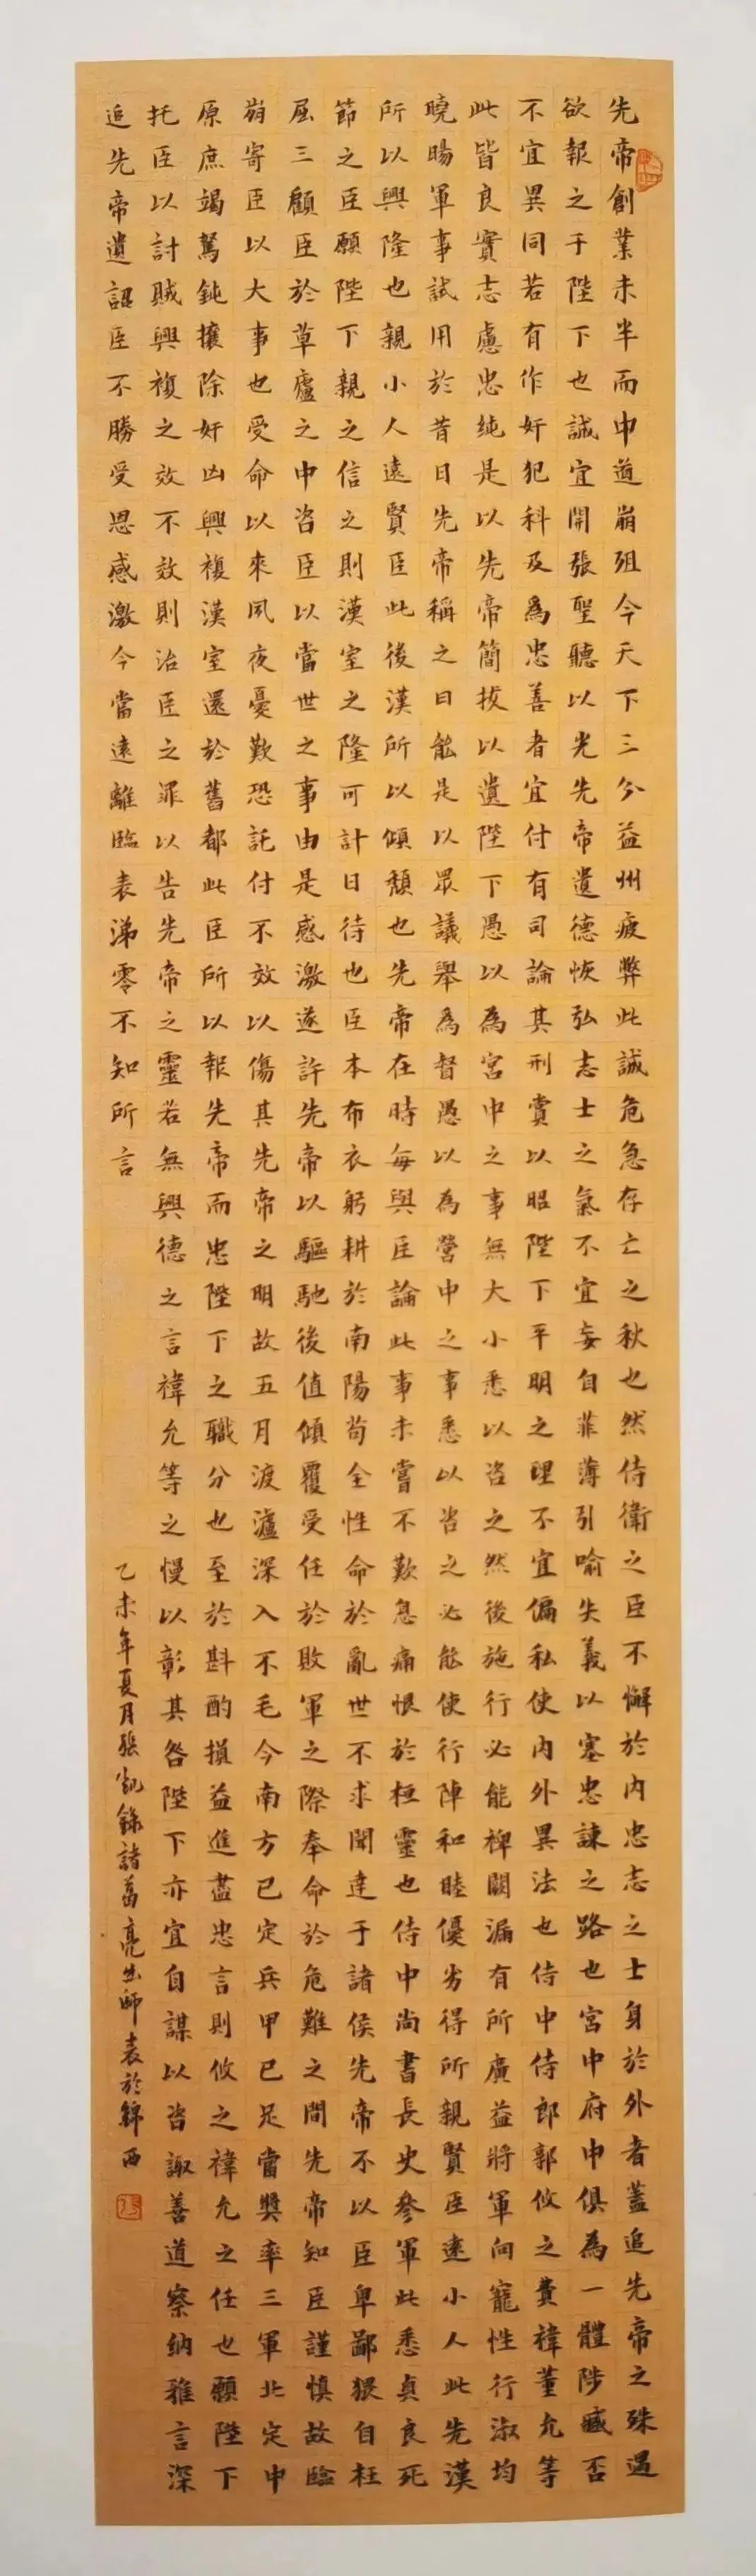 先帝創業未半而中道崩殂今天下三分益州疲弊此誠危急存亡之秋也然侍衛之臣不懈於內忠志之士身於外者蓋追先帝之殊遇
欲報之于陛下也誠宜開張聖聽以光先帝遺德恢弘志士之氣不宜妄自菲薄引喻失義以塞忠諫之路也宮中府中俱為一體陟臧否
不宜異同若有作奸犯科及為忠善者宜付有司論其刑賞以昭陛下平明之理不宜偏私使內外異法也侍中侍郎郭攸之費禕董允等
此皆良實志慮忠純是以先帝簡拔以遺陛下愚以為宮中之事無大小悉以咨之然後施行必能裨闕漏有所廣益將軍向寵性行淑均
曉暘軍事試用於昔日先帝稱之曰能是以眾議舉為督愚以為營中之事悉以咨之必能使行陣和睦優劣得所親賢臣遠小人此先漢
所以興隆也親小人遠賢臣此後漢所以傾頹也先帝在時每與臣論此事未嘗不歎息痛恨於桓靈也侍中尚書長史參軍此悉貞良死
節之臣願陛下親之信之則漢室之隆可計日待也臣本布衣躬耕於南陽苟全性命於亂世不求聞達于諸侯先帝不以臣卑鄙猥自枉
屈三顧臣於草廬之中咨臣以當世之事由是感激遂許先帝以驅馳後值傾覆受任於敗軍之際奉命於危難之間先帝知臣謹慎故臨
崩寄臣以大事也受命以來夙夜憂歎恐託付不效以傷其先帝之明故五月渡瀘深入不毛今南方已定兵甲已足當獎率三軍北定中
原庶竭駑鈍攘除奸凶興複漢室還於舊都此臣所以報先帝而忠陛下之職分也至於斟酌損益進盡忠言則攸之禕允之任也願陛下
托臣以討賊興複之效不效則治臣之罪以告先帝之靈若無興德之言禕允等之慢以彰其咎陛下亦宜自謀以咨諏善道察納雅言深
追先帝遺詔臣不勝受恩感激今當遠離臨表涕零不知所言
乙未年夏月張凱錄諸葛亮出師表於錦西